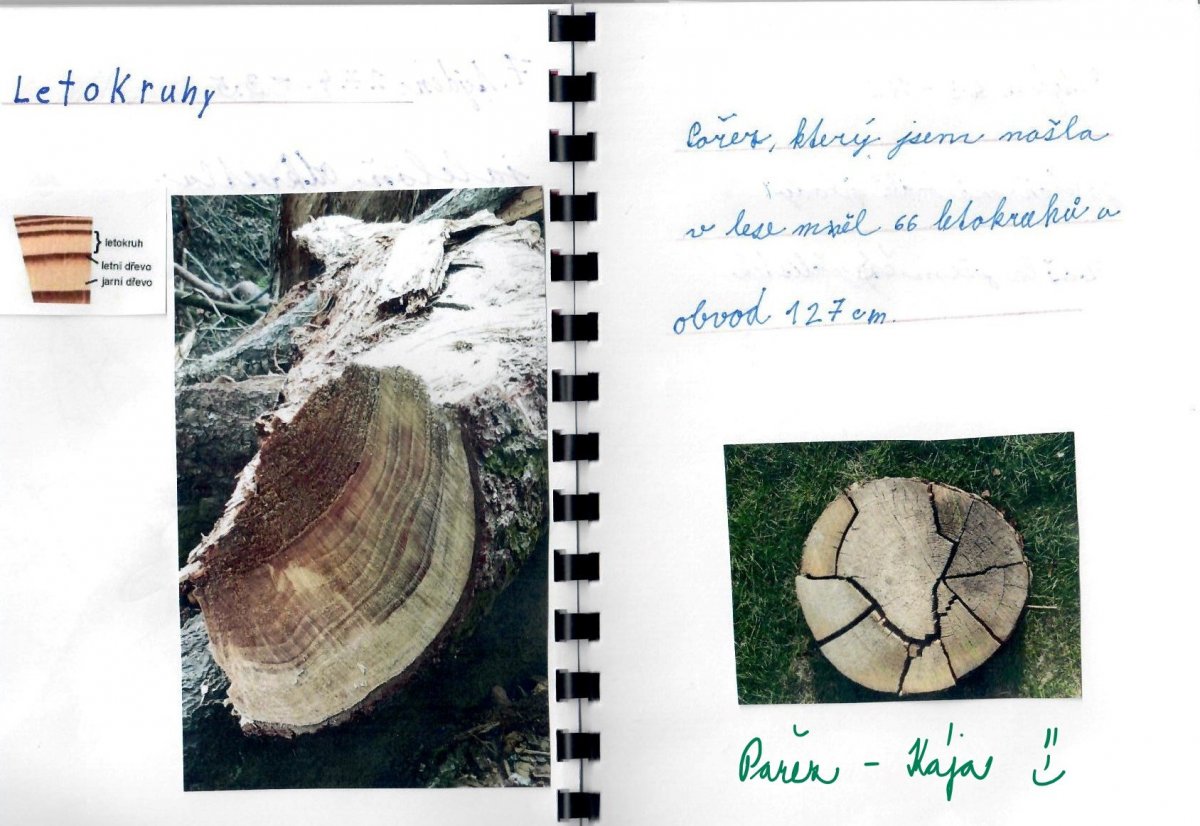 Letokruhy
letokruh
letní dřevo
jarní dřevo
Pařez, který jsem našla
v lese měl 66 letokruhů a
obvod 127 cm.
Pařez - Kája